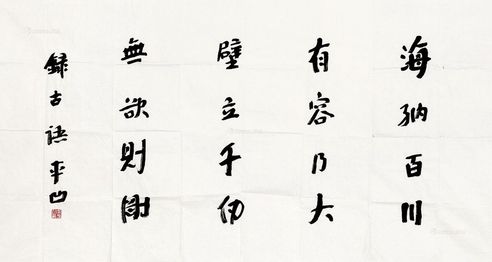 海納百川
有容乃大
壁立千仞
無欲則剛
錄古語平凹